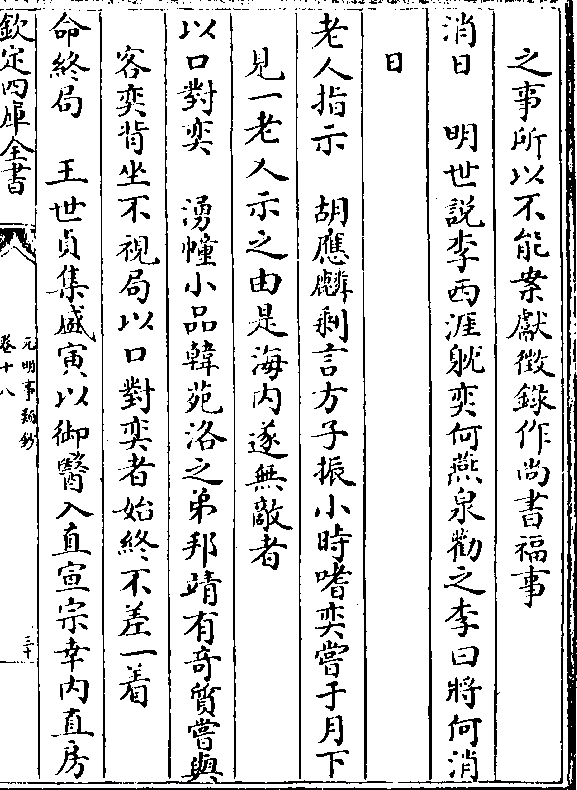 之事所以不能案獻徵錄作尚書福事
消日　明世説李西涯躭奕何燕泉勸之李曰將何消
日
老人指示　胡應麟剩言方子振小時嗜奕嘗于月下
見一老人示之由是海内遂無敵者
以口對奕　湧幢小品韓苑洛之弟邦靖有奇質嘗與
客奕背坐不視局以口對奕者始終不差一着
命終局　王世貞集盛寅以御醫入直宣宗幸内直房
欽定四庫全書
元明事類鈔
卷十八
三十